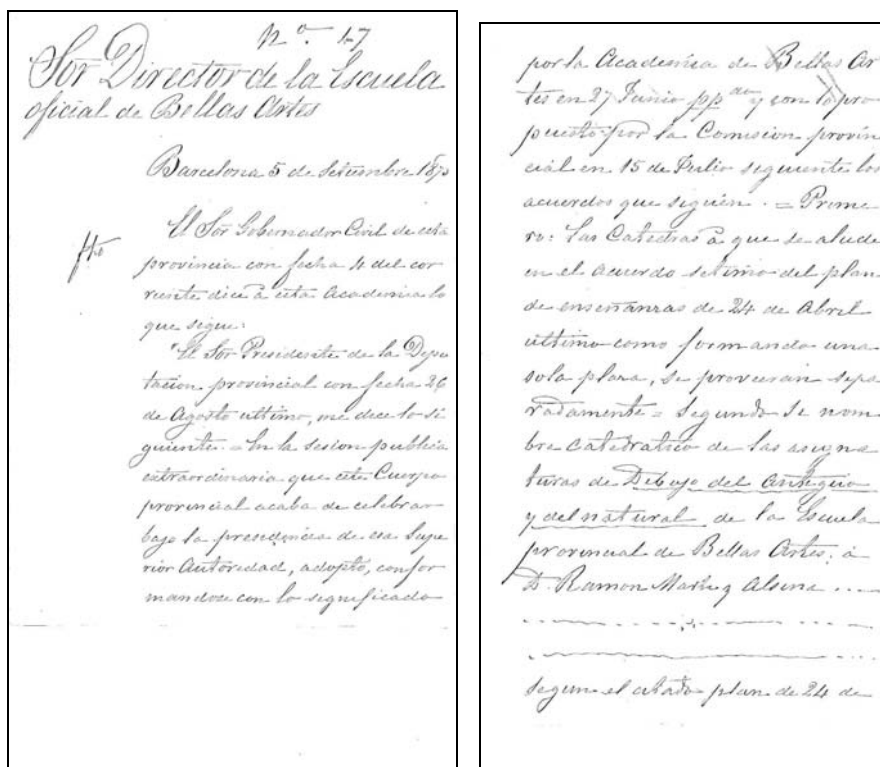 Nº 17
Sor Director de la Escuela
oficial de Bellas Artes
Barcelona 5 de Setiembre 187
El Sor Gobernador Civil de esta
provincia con fecha 4 del cor
riente dice à esta Academia lo
que sigue:
"El Sor Presidente de la Dipu
tacion provincial con fecha 26
de Agosto ultimo, me dice lo si
guiente. = En la sesion publica
extraordinaria que este Cuerpo
provincial acaba de celebrar
bajo la presidencia de esa Supe
rior Autoridad, adoptó, confor
mandose con lo significado
por la Academia de Bellas Ar
tes en 27 Junio pp.do y con lo pro
puesto por la Comision provin
cial en 15 de Julio siguiente los
acuerdos que siguen. = Prime
ro: Las Catedras à que se alude
en el acuerdo setimo del plan
de enseñanzas de 24 de Abril
ultimo como formando una
sola plaza, se proveeran sepa
radamente = Segundo Se nom
bre catedratico de las asigna
turas de Dibujo del Antiguo
y del natural de la Escuela
provincial de Bellas Artes, à
D. Ramon Marti y Alsina ....
segun el citado plan de 24 de